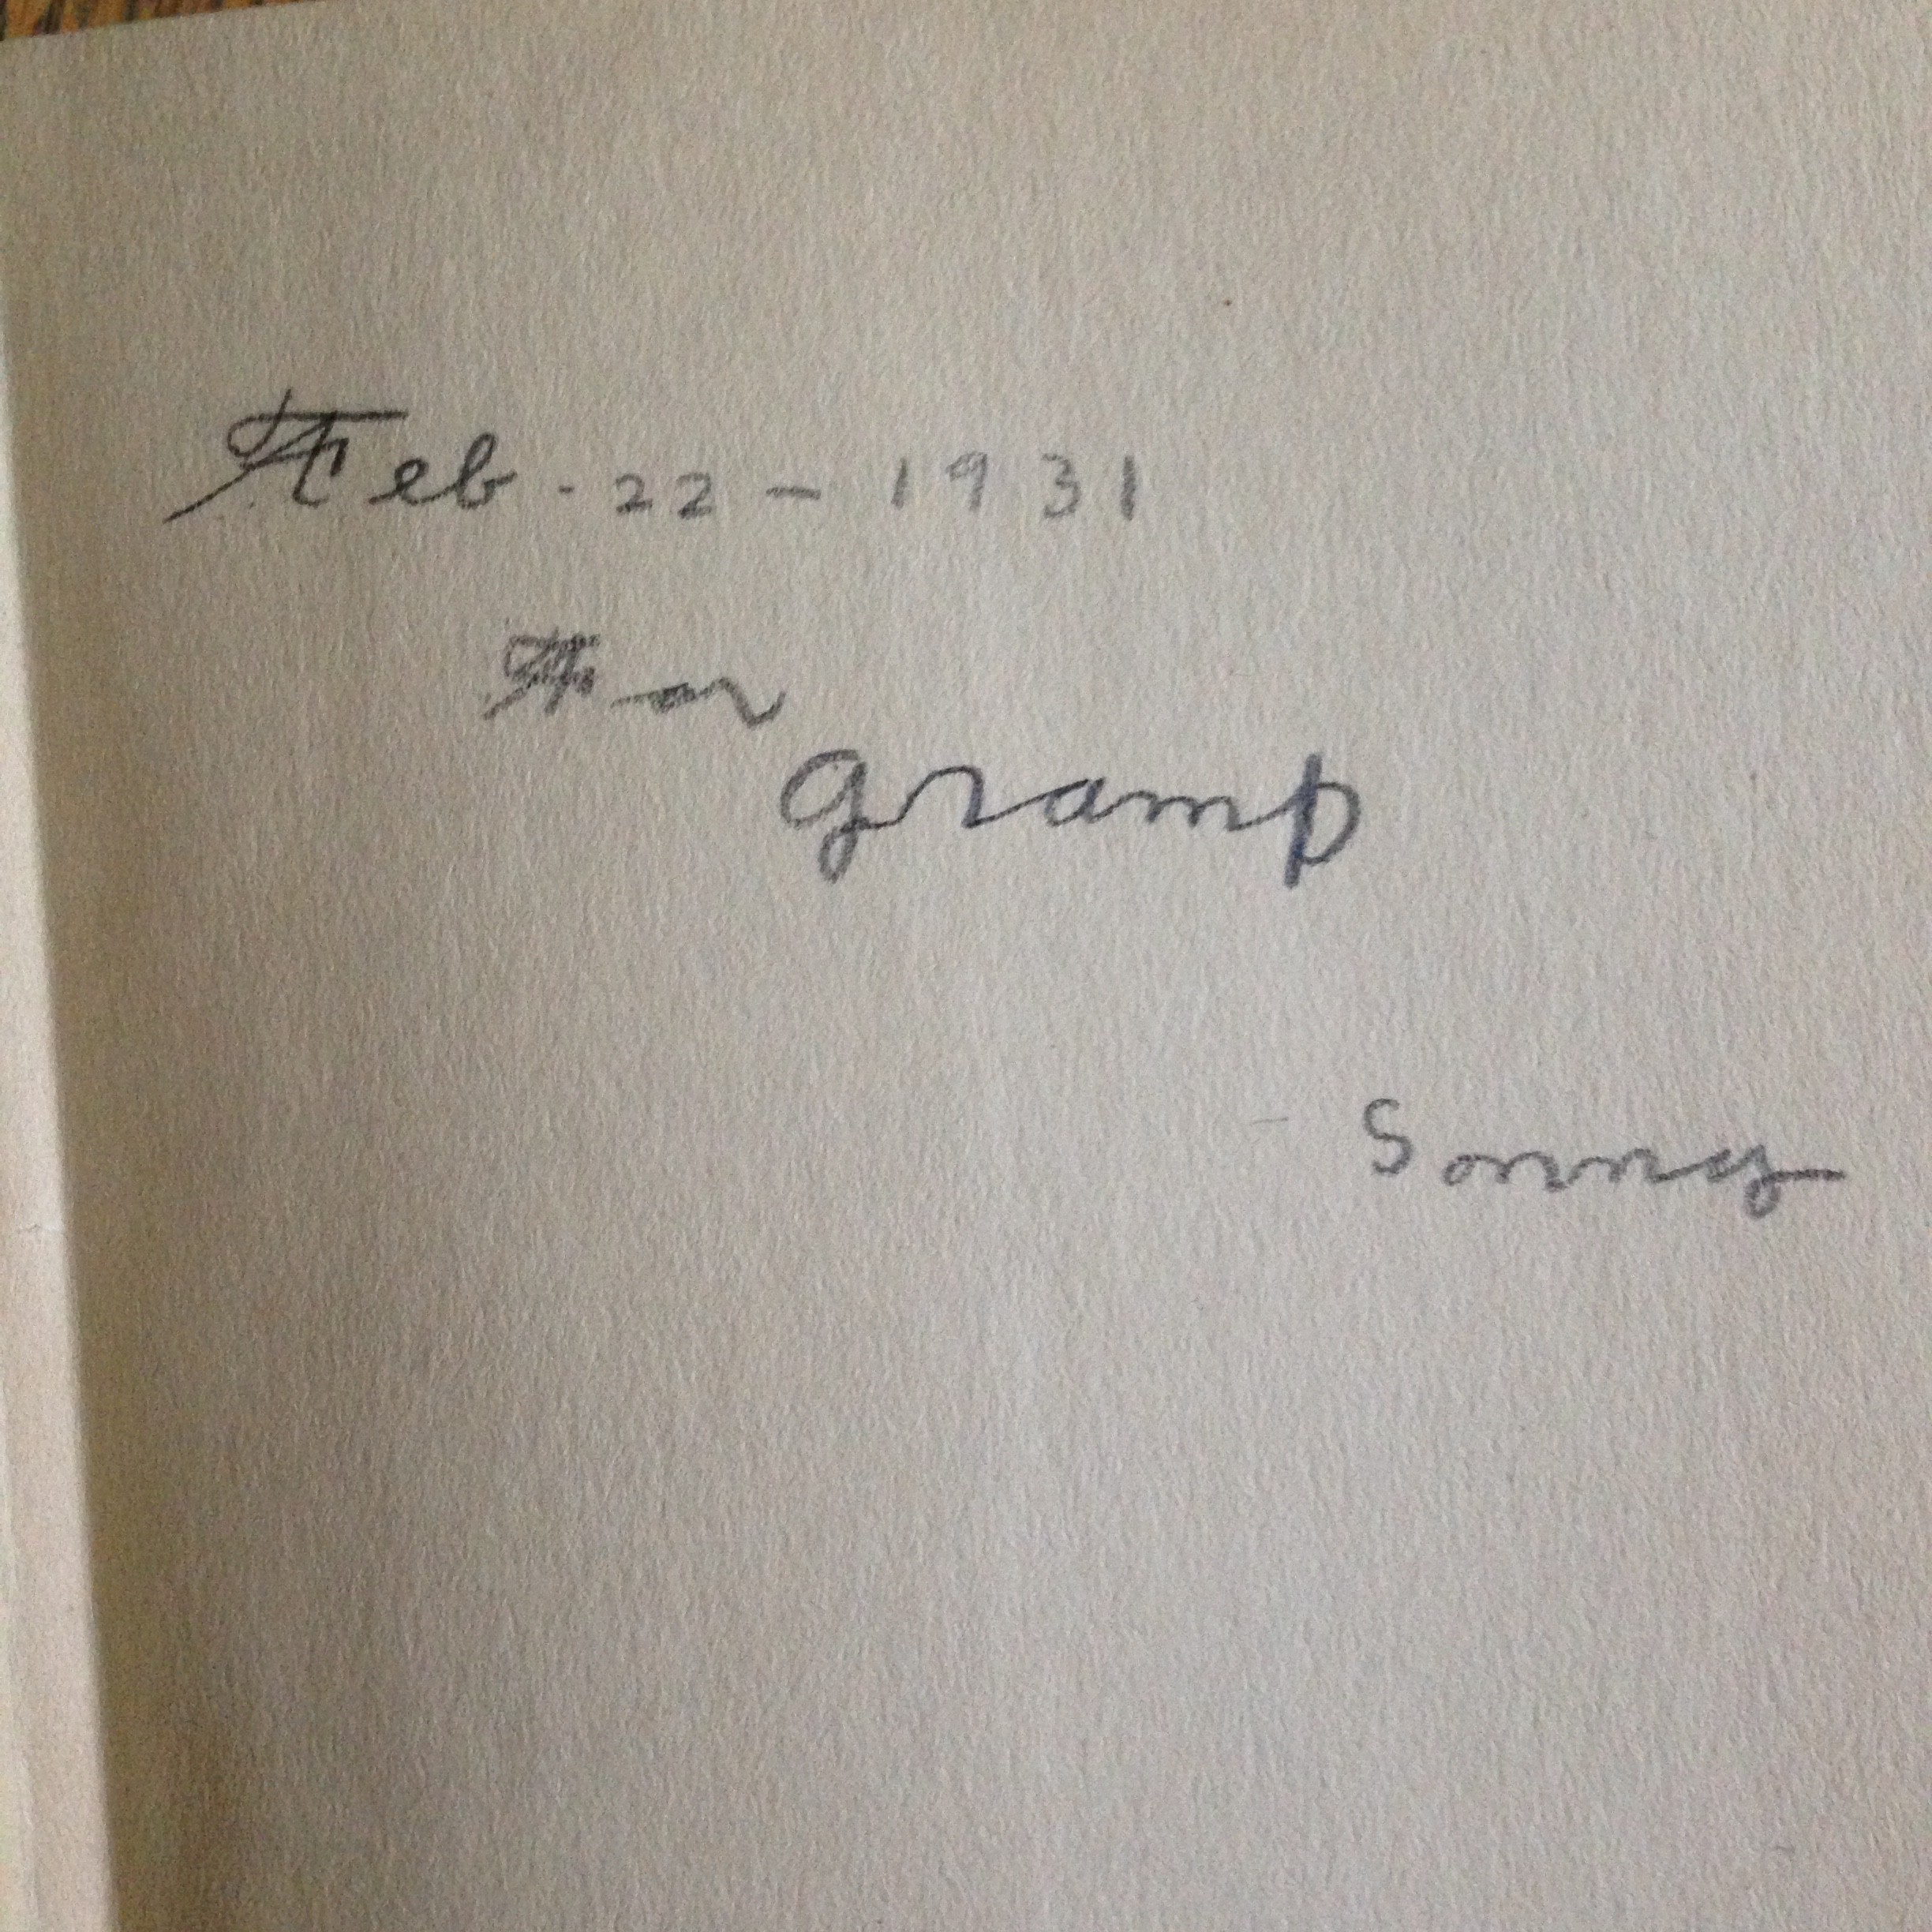 Feb. 22 - 1931
For
Gramp
Sonny